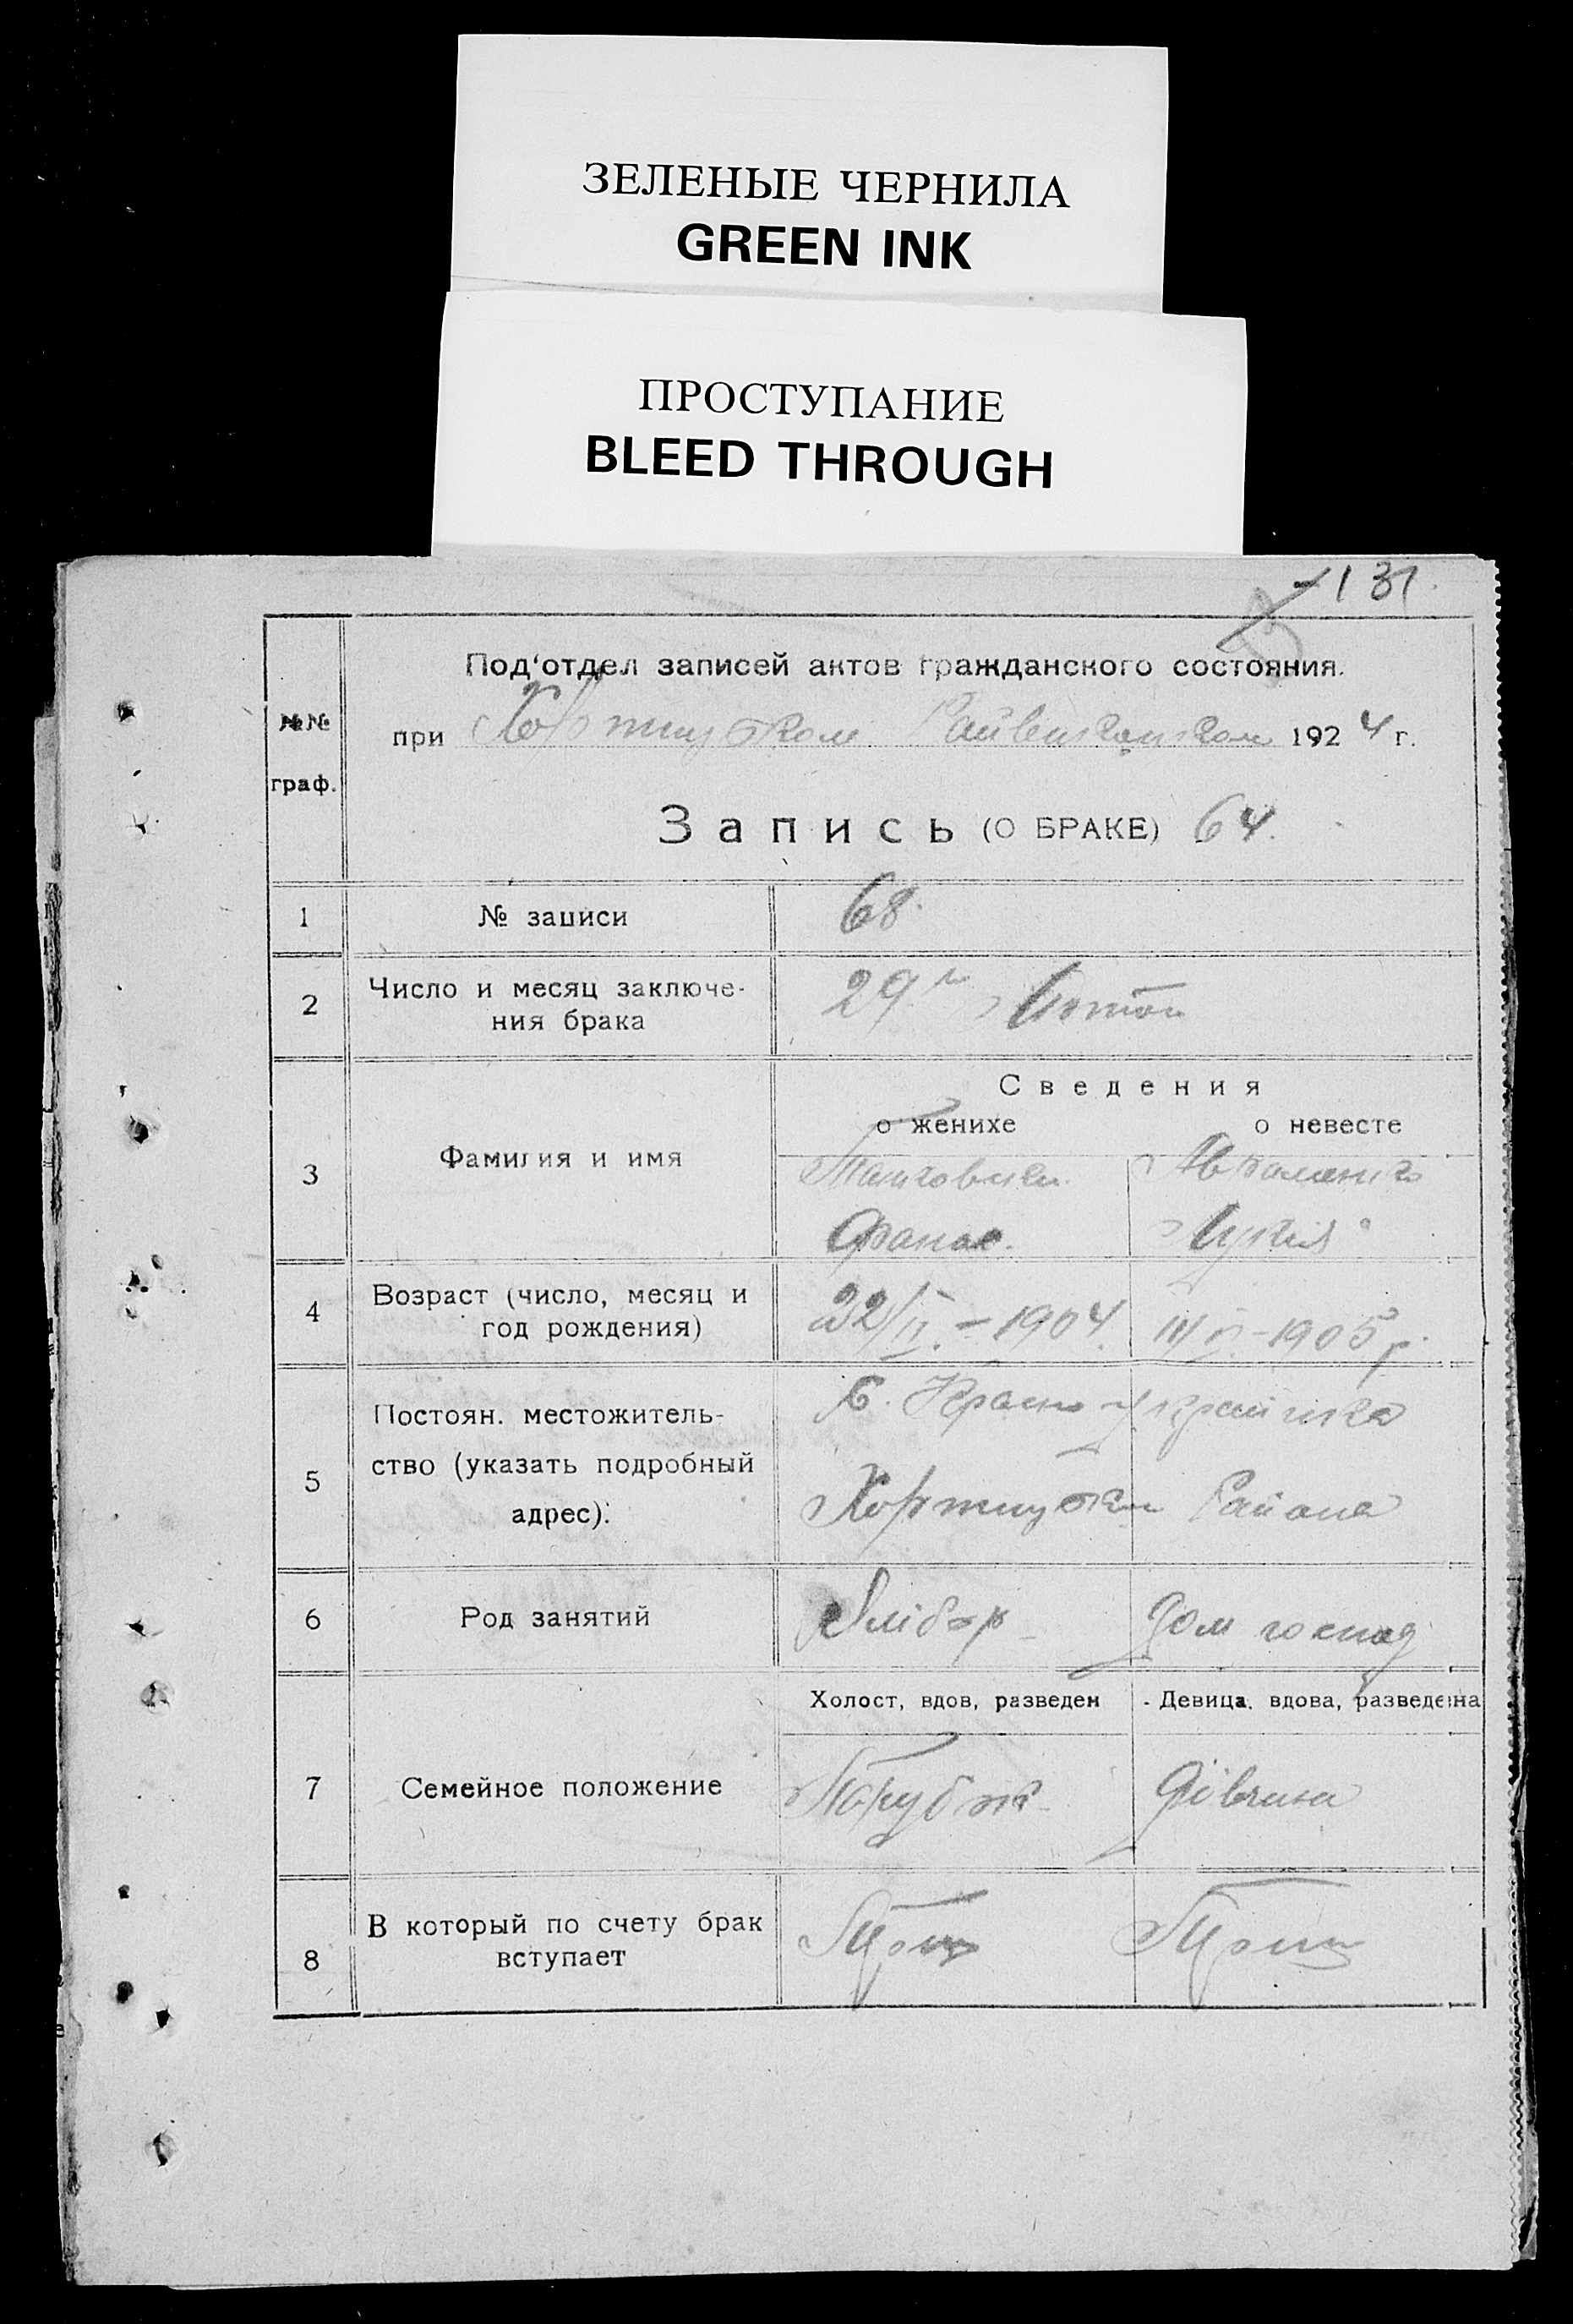 ЗЕЛЕНЫЕ ЧЕРНИЛА
GREEN INK
ПРОСТУПАНИЕ
BLEED THROUGH
131.
Под‘отдел записей актов гражданского состояния.
№№
граф.
при Хортицьком 1924 г.
Запись (О БРАКЕ) 64.
1 № записи 68.
2 Число и месяц заключе-
ния брака
29
Сведения
о женихе о невесте
3 Фамилия и имя
Панас.
4 Возраст (число, месяц и
год рождения)
22/II. – 1904. 1905 р.
5 Постоян. местожитель-
ство (указать подробный
адрес).
С. Красно українка
Хортицьким Района
6 Род занятий
Хлібор Дом господ
Холост, вдов, разведен Девица, вдова, разведена
7 Семейное положение
Парубок Дівчина
8 В который по счету брак
вступает
Перш Перш